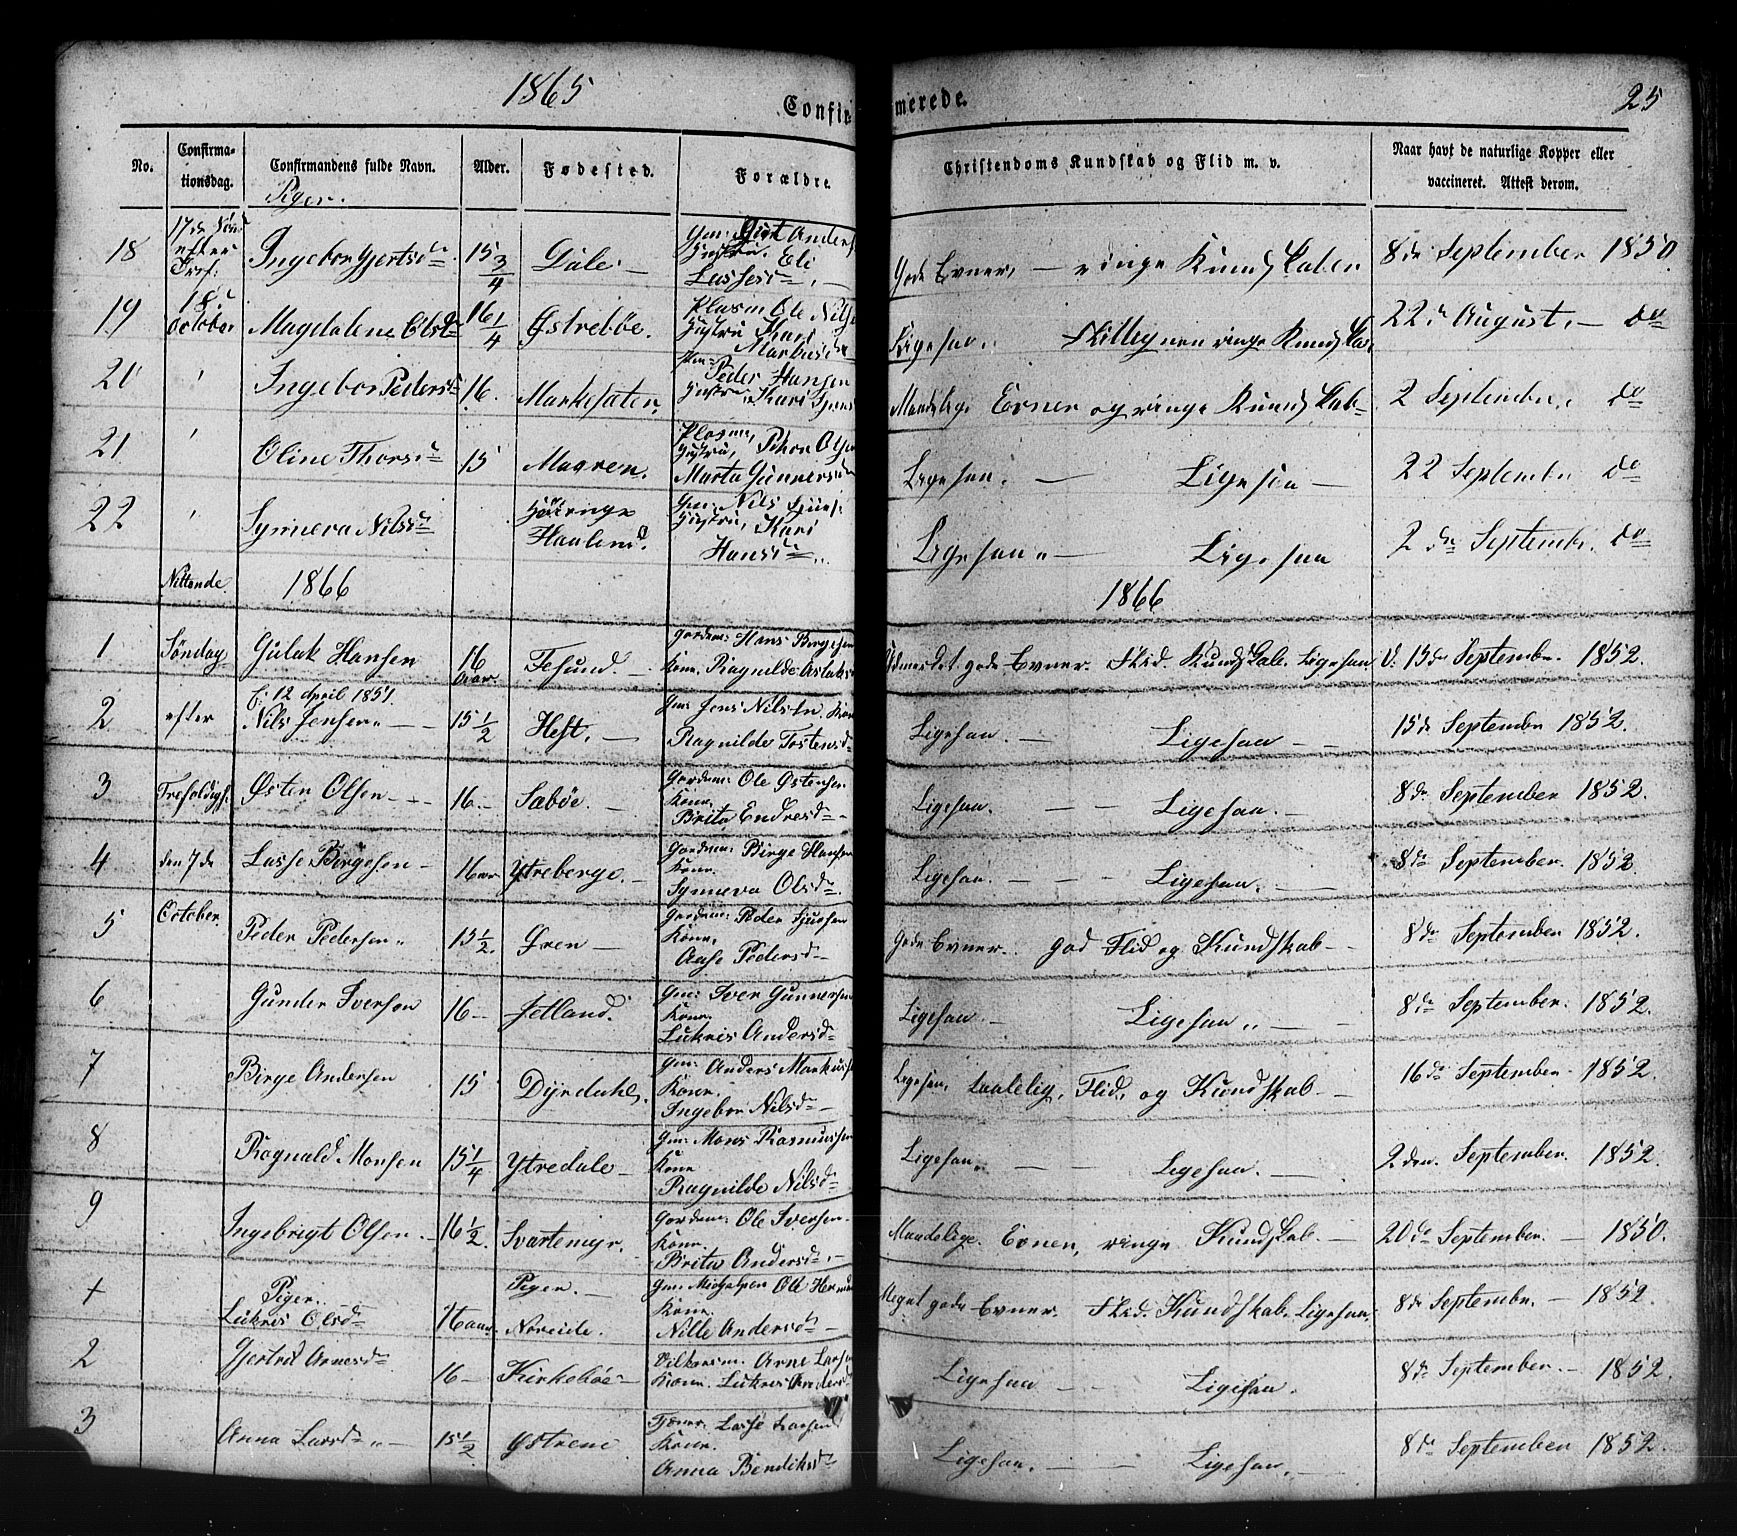 1865
Confirmerede.
25
No.
Confirmationsdag.
Confirmandens fulde Navn.
Alder.
Fødested.
Forældre.
Christendoms Kundskab og Flid m. v.
Naar havt de naturlige Kopper eller vaccineret. Attest derom.
Piger.
18 17de efter Ingebor Gjertsd 15 3/4 Dale Gm: Anders Hustru, Eli Gode Evner, — ringe Kundskaber 8de September 1850.
19 18. October Magdalene Olsd 16 1/4 Østrebøe. Plasm Ole Nils Hustru Kari Markusd Ligesaa. ringe Kundskab 22de August. — do
20 Ingebor Pedersd 16. Peder Hansen Hustru Kari Maadelige Evner og ringe Kundskab 2 September do
21 Oline Thorsd 15 Magren. Plasm, Olsen Hustru, Marta Gunnersd Ligesaa. — Ligesaa — 22 September do
22 Synneva Nilsd Haaland. Gm. Nils Hustru, Kari Hansd Ligesaa — Ligesaa 2den September. do
Nittende 1866 1866
1 Søndag Gulak Hansen 16 Aar. Gardm: Hans Børgesen Kone. Ragnilde Aslaksd Udmerket gode Evner. Flid. Kundskab. Ligesaa 15de September. 1852.
2 efter f: 12 April 1851. Nils Jensen 15 1/2 Heft. — Gm: Jens Nilsen. Kone Ragnilde Tostensd Ligesaa. — Ligesaa — 15de September 1852.
3 Trefoldigh. Østen Olsen — 16. — Sæbøe. — Gardm: Ole Østensen Kone. Brita Endresd — Ligesaa. — Ligesaa. 8de September 1852.
4 den 7de Lasse Børgesen — 16 aar Ytreberge. — Gardm: Børge Hansen Kone. Synneva Olsd. Ligesaa. — Ligesaa. — 8de September. 1852.
5 October. Peder Pedersen 15 1/2. Øren — Gardm: Peder Sjursen Kone, Aase Pedersd — Gode Evner. god Flid og Kundskab — 8de September 1852.
6 Gunder Iversen 16 — Jetland. Gm: Iver Gunnersen Kone. Lukris Andersd — Ligesaa. — Ligesaa — 8de September. 1852.
7 Børge Andersen 15 Dyrdahl. Gm: Anders Markuss Kone. Ingebor Nilsd — Ligesaa, taalelig, Flid, og Kundskab — 16de September — 1852.
8 Ragnald Monsen 15 1/4 Ytredale — Gm: Mons Rasmussen Kone Ragnilde Nilsd — Ligesaa — Ligesaa. — 2den. September. 1852.
9 Ingebrigt Olsen. 16 1/2. Svartemyr. Gardm: Ole Iversen. Kone. Brita Andersd — Maadelige. Evner, ringe Kundskab. — 20de September. — 1850.
Piger. Piger. —
1 Lukris Olsd — 16 aar Noreide. Gm: Ole Kone. Nille Andersd — Meget gode Evner. Flid. Kundskab. Ligesaa, 8de September. — 1852.
2 Gjertrud Arnesd — 16 — Kirkebøe — Arne Larsen Kone. Lukris Andersd Ligesaa — Ligesaa. 8de September. — 1852.
3 Anna Larsd — 15 1/2 Østrene Lasse Larsen Kone. Anna Bendiksd — Ligesaa. — Ligesaa. — 8de September 1852.